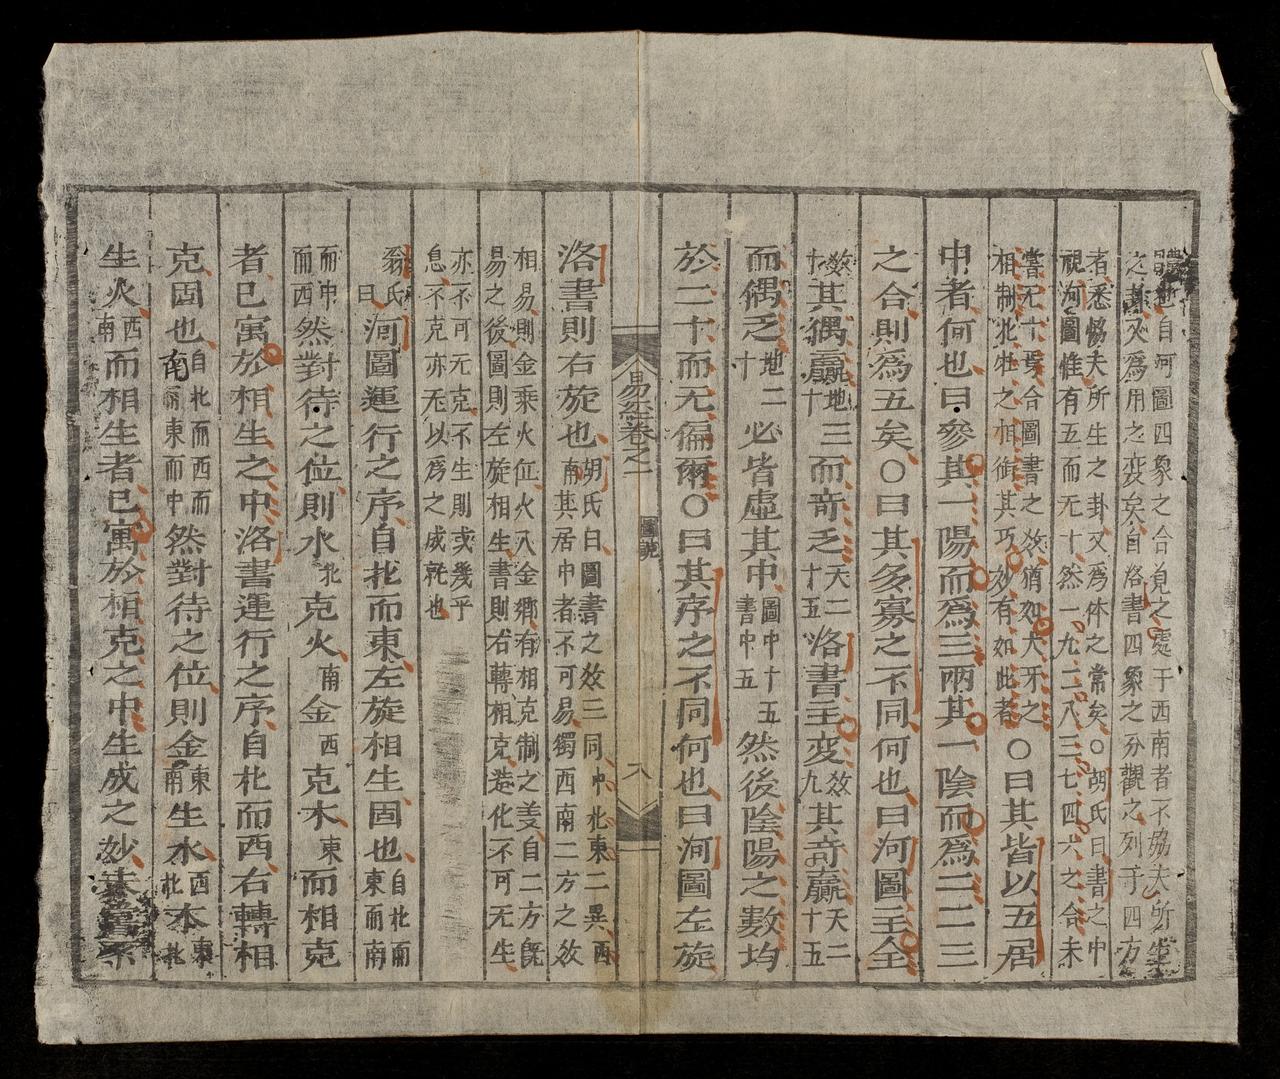 自河圖四象之合見之處于西南者不協夫所生
之又爲用之变矣自洛書四象之分觀之列于四方
者悉恊夫所生之卦又爲体之常矣○胡氏曰書之中
視洞圖惟有五而无十然一九二八三七四六之合未
嘗无十焉合圖書之效猶如犬牙之
相制北牡之相御其巧妙有如此者○曰其皆以五居
中者何也曰參其一陽而爲三兩其一陰而爲二二三
之合則爲五矣○曰其多寡之不同何也曰河圖主全
效十其獨贏地三十而竒乏天二十五洛書主变效九其竒贏天二十五
而偶乏地二十必皆虛其中圖中十五書中五然後陰陽之數均
於二十而无偏爾○曰其序之不同何也曰洞圖左旋
易經卷之一 圖說 八
洛書則右旋也胡氏曰圖書之效三同中北東二異西
南其居中者不可易獨西南二方之效
相易則金乘火位火入金鄉有相克制之羑自二方旣
易之後圖則左旋相生書則右轉相克造化不可无生
亦不可无克不生則或幾乎
息不克亦无以爲之成就也
翁氏曰洞圖運行之序自北而東左旋相生固也自北而東而南
而中而西然對待之位則水北克火南金西克木東而相克
者已寓於相生之中洛書運行之序自北而西右轉相
克固也自北而西而南東而中然對待之位則金東南生水西北木東北
生火西南而相生者已寓於相克之中生成之妙